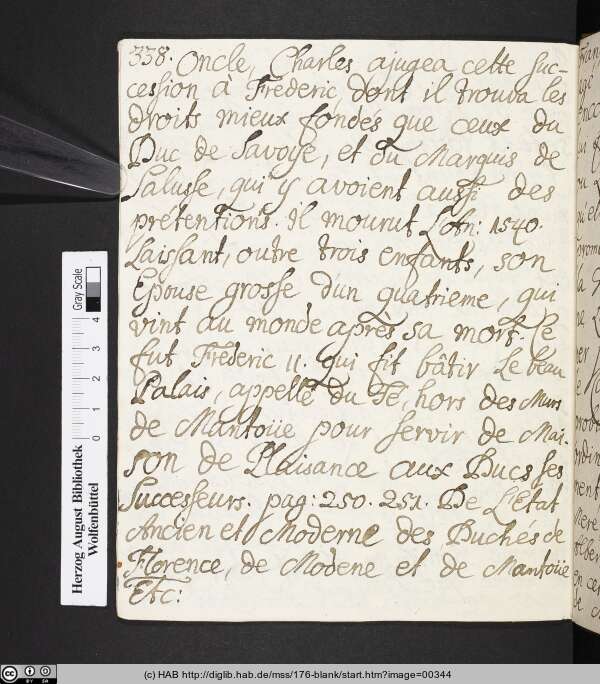 338. Oncle, Charles ajugea cette Suc-
cession à Frederic, dont il trouva les
droits mieux fondés que ceux du
Duc de Savoye, et du Marquis de
Saluste, qui y avoient aussi des
prétentions. il mourut L'An: 1540.
Laissant, outre trois enfants, son
Epouse grosse d'un quatrieme, qui
vint au monde après sa mort. Ce
fut Frederic II. qui fit bâtir Le beau
Palais, appellé du Té, hors des Murs
de Mantoüe pour servir de Mai-
son de Plaisance aux Ducs ses
Successeurs. pag: 250. 251. De L'Etat
Ancien et Moderne des Duchés de
Florence, de Modene et de Mantoüe
Etc:
Gray Scale
0 1 2 3 4
Herzog August Bibliothek
Wolfenbüttel
cc BY SA
(c) HAB http://diglib.hab.de/mss/176-blank/start.htm?image=00344